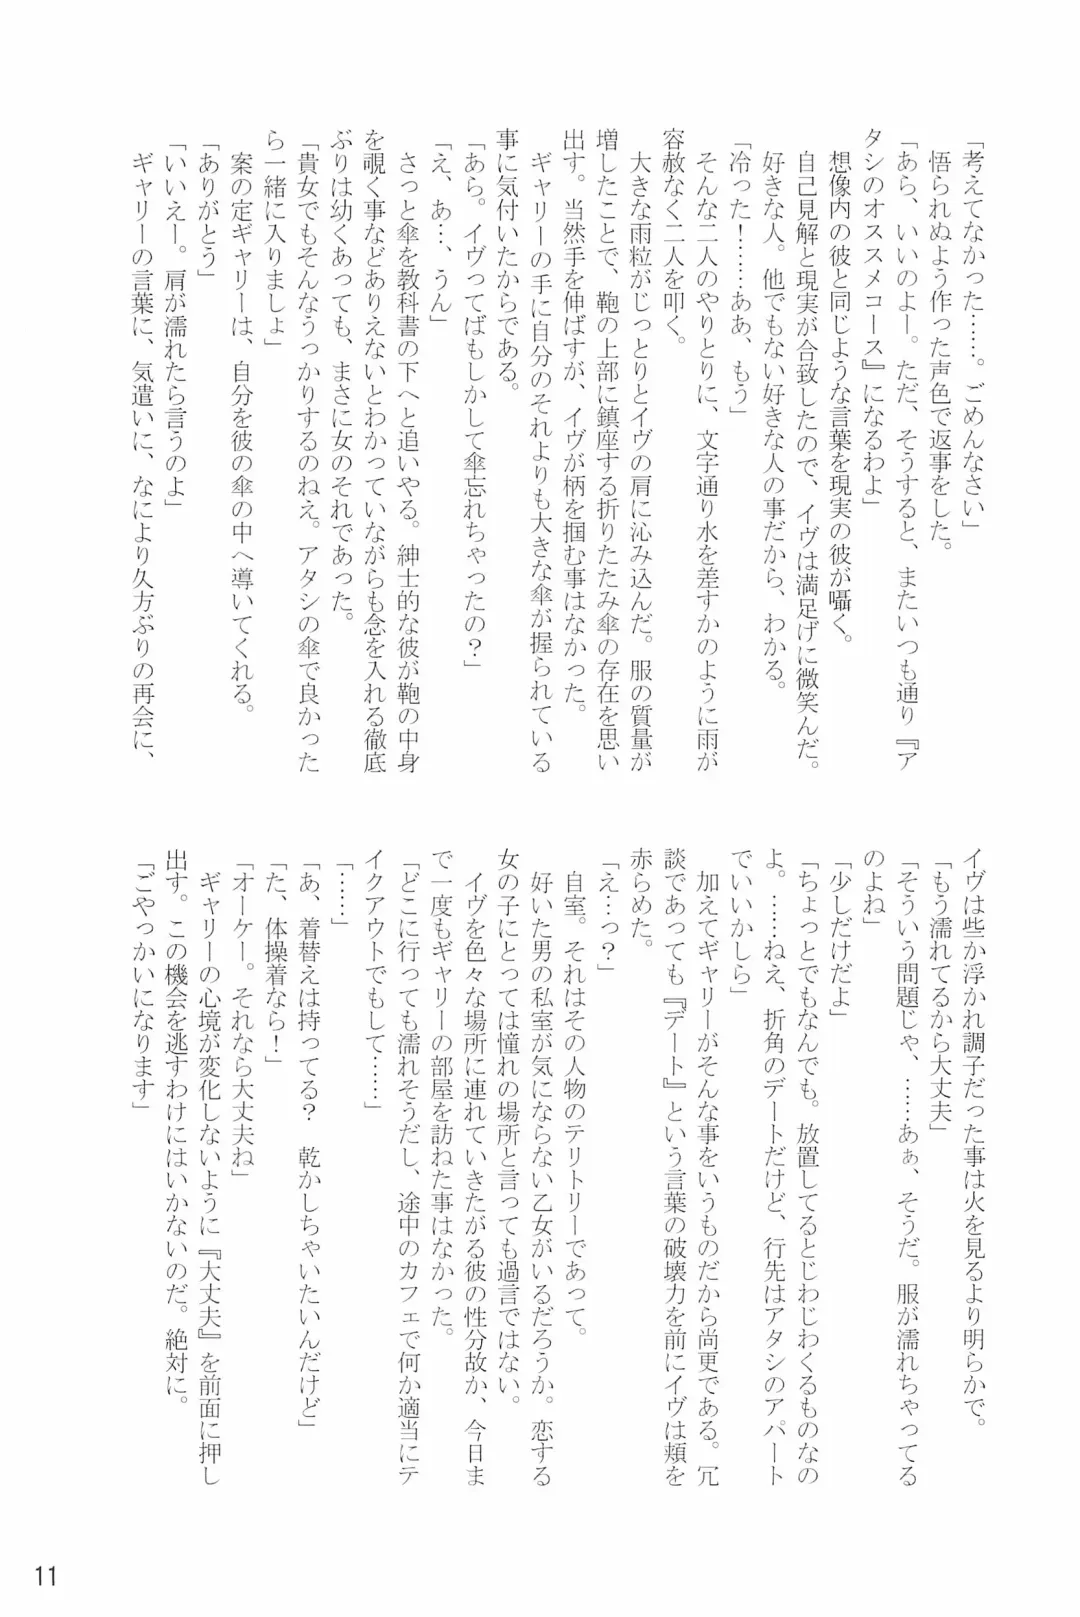 「考えてなかった……。ごめんなさい」
　悟られぬよう作った声色で返事をした。
「あら、いいのよー。ただ、そうすると、またいつも通り『ア
タシのオススメコース』になるわよ」
　想像内の彼と同じような言葉を現実の彼が囁く。
　自己見解と現実が合致したので、イヴは満足げに微笑んだ。
好きな人。他でもない好きな人の事だから、わかる。
「冷った！……ああ、もう」
　そんな二人のやりとりに、文字通り水を差すかのように雨が
容赦なく二人を叩く。
　大きな雨粒がじっとりとイヴの肩に沁み込んだ。服の質量が
増したことで、鞄の上部に鎮座する折りたたみ傘の存在を思い
出す。当然手を伸ばすが、イヴが柄を掴む事はなかった。
　ギャリーの手に自分のそれよりも大きな傘が握られている
事に気付いたからである。
「あら。イヴってばもしかして傘忘れちゃったの？」
「え、あ…、うん」
　さっと傘を教科書の下へと追いやる。紳士的な彼が鞄の中身
を覗く事などありえないとわかっていながらも念を入れる徹底
ぶりは幼くあっても、まさに女のそれであった。
「貴女でもそんなうっかりするのねえ。アタシの傘で良かった
ら一緒に入りましょ」
　案の定ギャリーは、自分を彼の傘の中へ導いてくれる。
「ありがとう」
「いいえー。肩が濡れたら言うのよ」
　ギャリーの言葉に、気遣いに、なにより久方ぶりの再会に、
イヴは些か浮かれ調子だった事は火を見るより明らかで。
「もう濡れてるから大丈夫」
「そういう問題じゃ、……あぁ、そうだ。服が濡れちゃってる
のよね」
「少しだけだよ」
「ちょっとでもなんでも。放置してるとじわじわくるものなの
よ。……ねえ、折角のデートだけど、行先はアタシのアパート
でいいかしら」
　加えてギャリーがそんな事をいうものだから尚更である。冗
談であっても『デート』という言葉の破壊力を前にイヴは頬を
赤らめた。
「え…っ？」
　自室。それはその人物のテリトリーであって。
　好いた男の私室が気にならない乙女がいるだろうか。恋する
女の子にとっては憧れの場所と言っても過言ではない。
　イヴを色々な場所に連れていきたがる彼の性分故か、今日ま
で一度もギャリーの部屋を訪ねた事はなかった。
「どこに行っても濡れそうだし、途中のカフェで何か適当にテ
イクアウトでもして……」
「……」
「あ、着替えは持ってる？　乾かしちゃいたいんだけど」
「た、体操着なら！」
「オーケー。それなら大丈夫ね」
　ギャリーの心境が変化しないように『大丈夫』を前面に押し
出す。この機会を逃すわけにはいかないのだ。絶対に。
「ごやっかいになります」
11